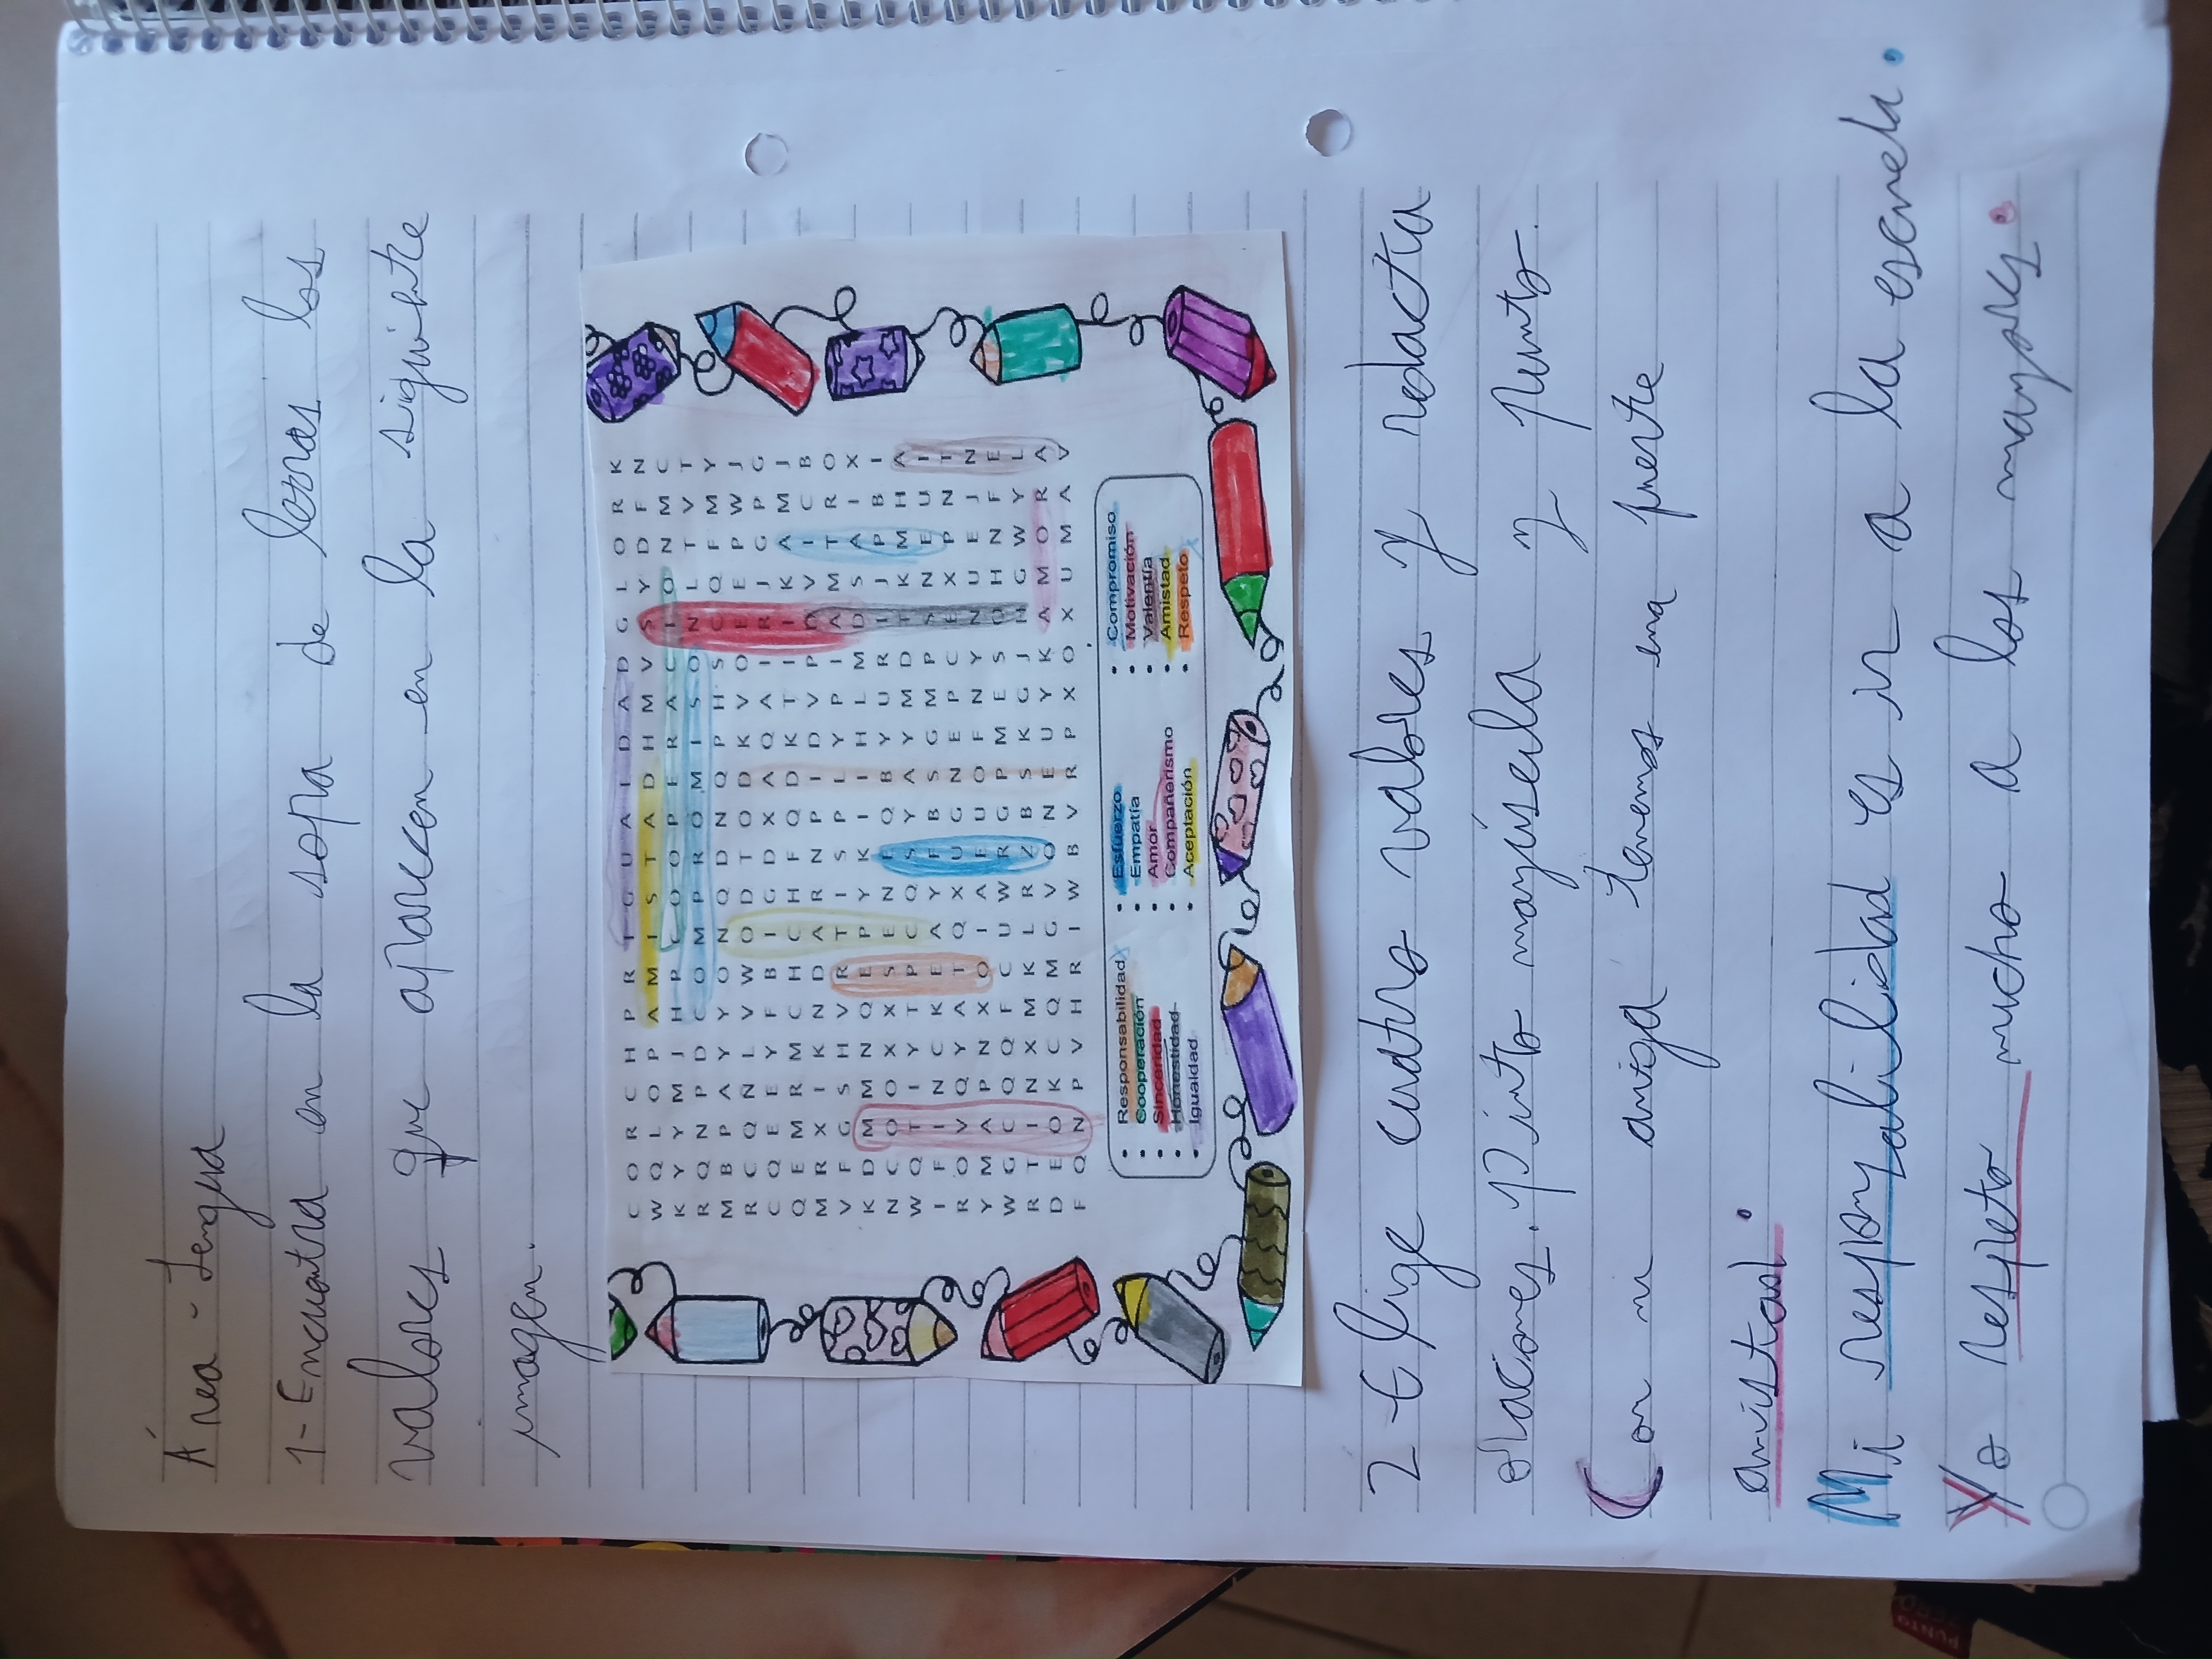 Área - Lengua
1- Encuentra en la sopa de letras los
valores que aparecen en la siguiente
imagen.
C O R C H P R I G U A I D A D G L O R K
W Q L O P A M I S T A D H M V S Y D F N
K Y Y M J H P C O O P E R A C I O N M C
R Q N P D C O M P R O M I S O N L T V T
M B P A Y Y O N Q D N Q P H S C Q F M Y
R C Q N L V W O D T O D K V O E E P W J
C Q E E Y F B I G D X A Q A I R J G P G
Q E M R M C H C H F Q D K T I I K A M J
M R X I K N D A R N P I D V P D V I C B
V F G S H V R T I S P L Y P I A M T R O
K D M M N Q E P Y K I I H L M D S A I X
N C O O X X S E N E Q B Y U R I J P B I
W Q T I Y T P C Q S Y A Y M D T K M H A
I F I N C K E A Y F B S G M P S N E U I
R O V Q Y A T Q X U G N E P C E X P N T
Y M A P N X O I A E U O F N Y N U E J N
W G C Q Q F C U W R G P M E S O H N F E
R T I N X M K L R Z B S K G J H G W Y L
D E O K C Q M G V O N E U Y K A M O R A
F Q N P V H R I W B V R P X O X U M A V
• Responsabilidad
• Cooperación
• Sinceridad
• Honestidad
• Igualdad
• Esfuerzo
• Empatía
• Amor
• Compañerismo
• Aceptación
• Compromiso
• Motivación
• Valentía
• Amistad
• Respeto
2- Elige cuatro valores y redacta
oraciones. Pinto mayúscula y punto.
Con mi amiga tenemos una fuerte
amistad.
Mi responsabilidad es ir a la escuela.
Yo respeto mucho a los mayores.